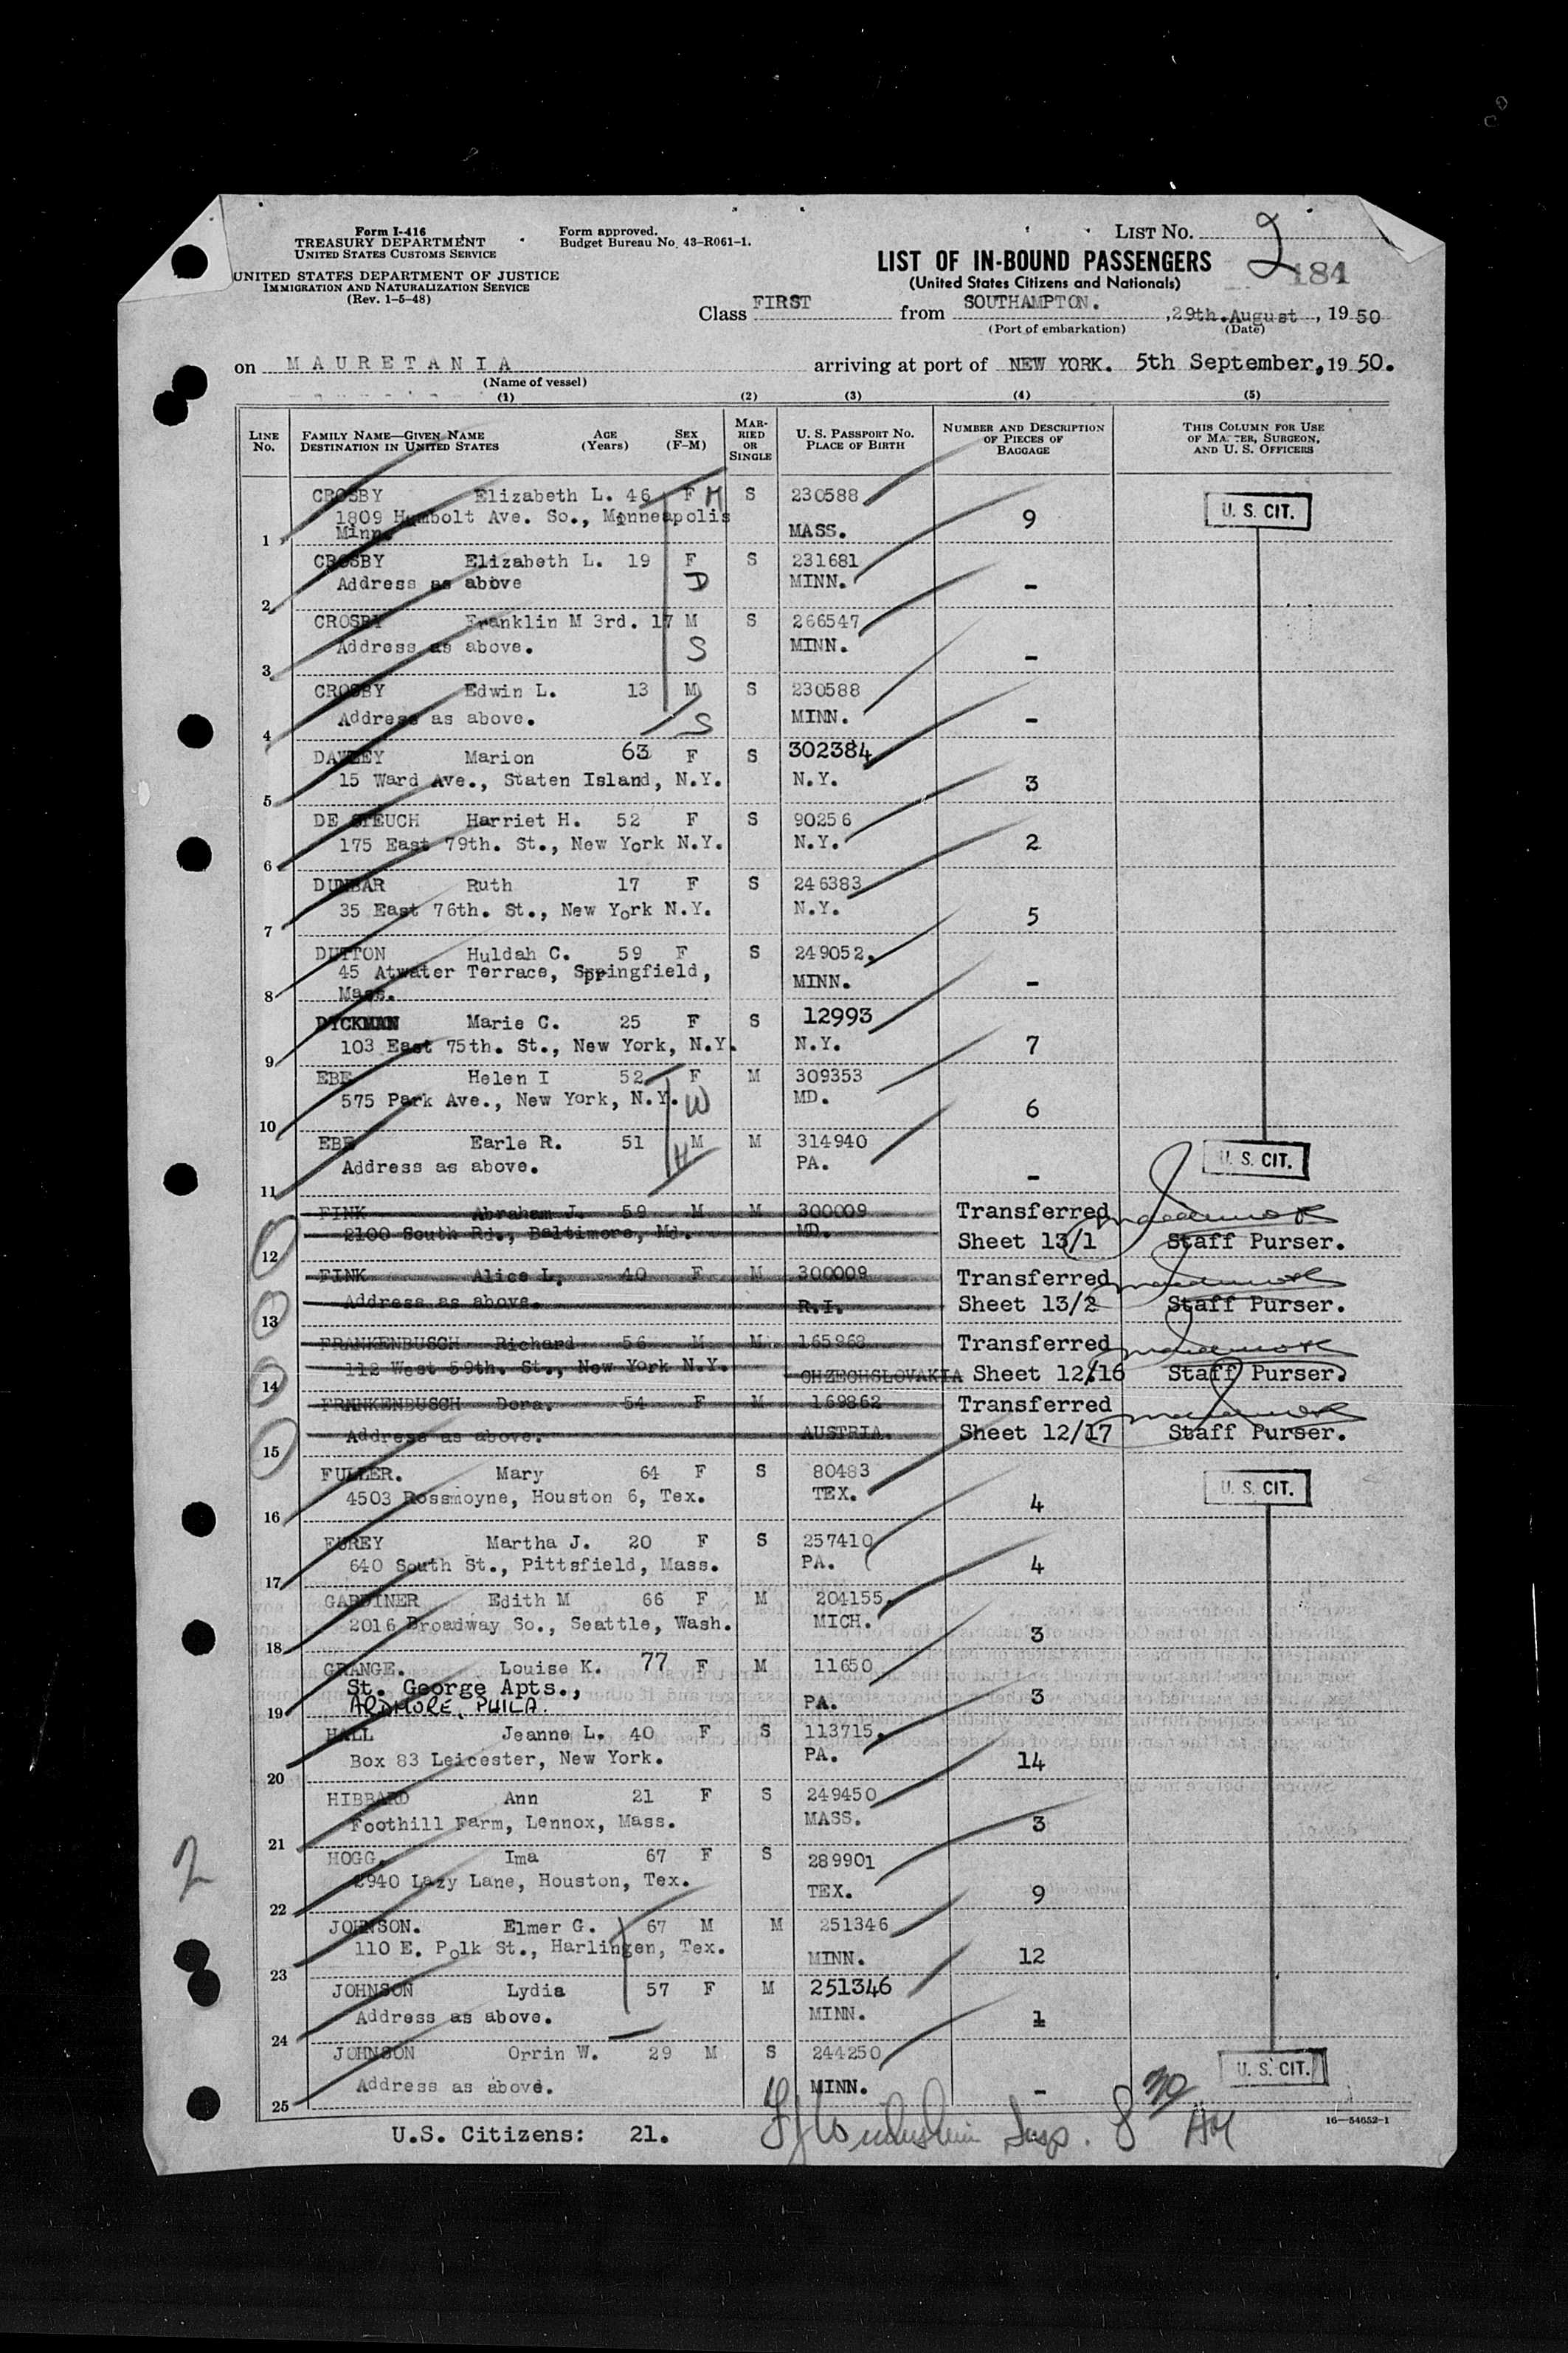 Form I-416
TREASURY DEPARTMENT
UNITED STATES CUSTOMS SERVICE
UNITED STATES DEPARTMENT OF JUSTICE
IMMIGRATION AND NATURALIZATION SERVICE
(Rev. 1-5-48)
Form approved.
Budget Bureau No. 43-R061-1.
LIST NO. 2
184
LIST OF IN-BOUND PASSENGERS
(United States Citizens and Nationals)
Class FIRST from SOUTHAMPTON. , 29th.August , 19 50
(Port of embarkation) (Date)
on MAURETANIA arriving at port of NEW YORK. 5th September, 19 50.
(Name of vessel)
(1) (2) (3) (4) (5)
LINE NO. FAMILY NAME—GIVEN NAME DESTINATION IN UNITED STATES AGE (Years) SEX (F-M) MARRIED OR SINGLE U. S. PASSPORT NO. PLACE OF BIRTH NUMBER AND DESCRIPTION OF PIECES OF BAGGAGE THIS COLUMN FOR USE OF MASTER, SURGEON, AND U. S. OFFICERS
CROSBY Elizabeth L. 46 F M S 230588 U. S. CIT.
1809 Humbolt Ave. So., Minneapolis 9
1 Minn. MASS.
CROSBY Elizabeth L. 19 F S 231681
Address as above D MINN. -
2
CROSBY Franklin M 3rd. 17 M S 266547
Address as above. S MINN. -
3
CROSBY Edwin L. 13 M S 230588
Address as above. S MINN. -
4
DAWLEY Marion 63 F S 302384
15 Ward Ave., Staten Island, N.Y. N.Y. 3
5
DE STEUCH Harriet H. 52 F S 90256
175 East 79th. St., New York N.Y. N.Y. 2
6
DUNBAR Ruth 17 F S 246383
35 East 76th. St., New York N.Y. N.Y. 5
7
DUTTON Huldah C. 59 F S 249052.
45 Atwater Terrace, Springfield, MINN. -
8 Mass.
DYCKMAN Marie C. 25 F S 12993
103 East 75th. St., New York, N.Y. N.Y. 7
9
EBE Helen I 52 F M 309353
575 Park Ave., New York, N.Y. W MD. 6
10
EBE Earle R. 51 M M 314940 U. S. CIT.
Address as above. H PA. -
11
FINK Abraham J. 59 M M 300009 Transferred
12 2100 South Rd., Baltimore, Md. MD. Sheet 13/1 Staff Purser.
FINK Alice L. 40 F M 300009 Transferred
13 Address as above. R.I. Sheet 13/2 Staff Purser.
FRANKENBUSCH Richard 56 M M 165968 Transferred
14 112 West 59th. St., New York N.Y. CHZECHSLOVAKIA Sheet 12/16 Staff Purser.
FRANKENBUSCH Dora. 54 F M 169862 Transferred
15 Address as above. AUSTRIA. Sheet 12/17 Staff Purser.
FULLER. Mary 64 F S 80483 U. S. CIT.
4503 Rossmoyne, Houston 6, Tex. TEX. 4
16
FUREY Martha J. 20 F S 257410
640 South St., Pittsfield, Mass. PA. 4
17
GARDINER Edith M 66 F M 204155.
2016 Broadway So., Seattle, Wash. MICH. 3
18
GRANGE. Louise K. 77 F M 11650
St. George Apts., PA. 3
19 ARDMORE, PHILA.
HALL Jeanne L. 40 F S 113715.
Box 83 Leicester, New York. PA. 14
20
HIBBARD Ann 21 F S 249450
Foothill Farm, Lennox, Mass. MASS. 3
21
HOGG. Ima 67 F S 289901
2940 Lazy Lane, Houston, Tex. TEX. 9
22
JOHNSON. Elmer G. 67 M M 251346
110 E. Polk St., Harlingen, Tex. MINN. 12
23
JOHNSON Lydia 57 F M 251346
Address as above. MINN. 1
24
JOHNSON Orrin W. 29 M S 244250 U. S. CIT.
Address as above. MINN. -
25
16—54652-1
U.S. Citizens: 21. Insp. 8 30 AM
2